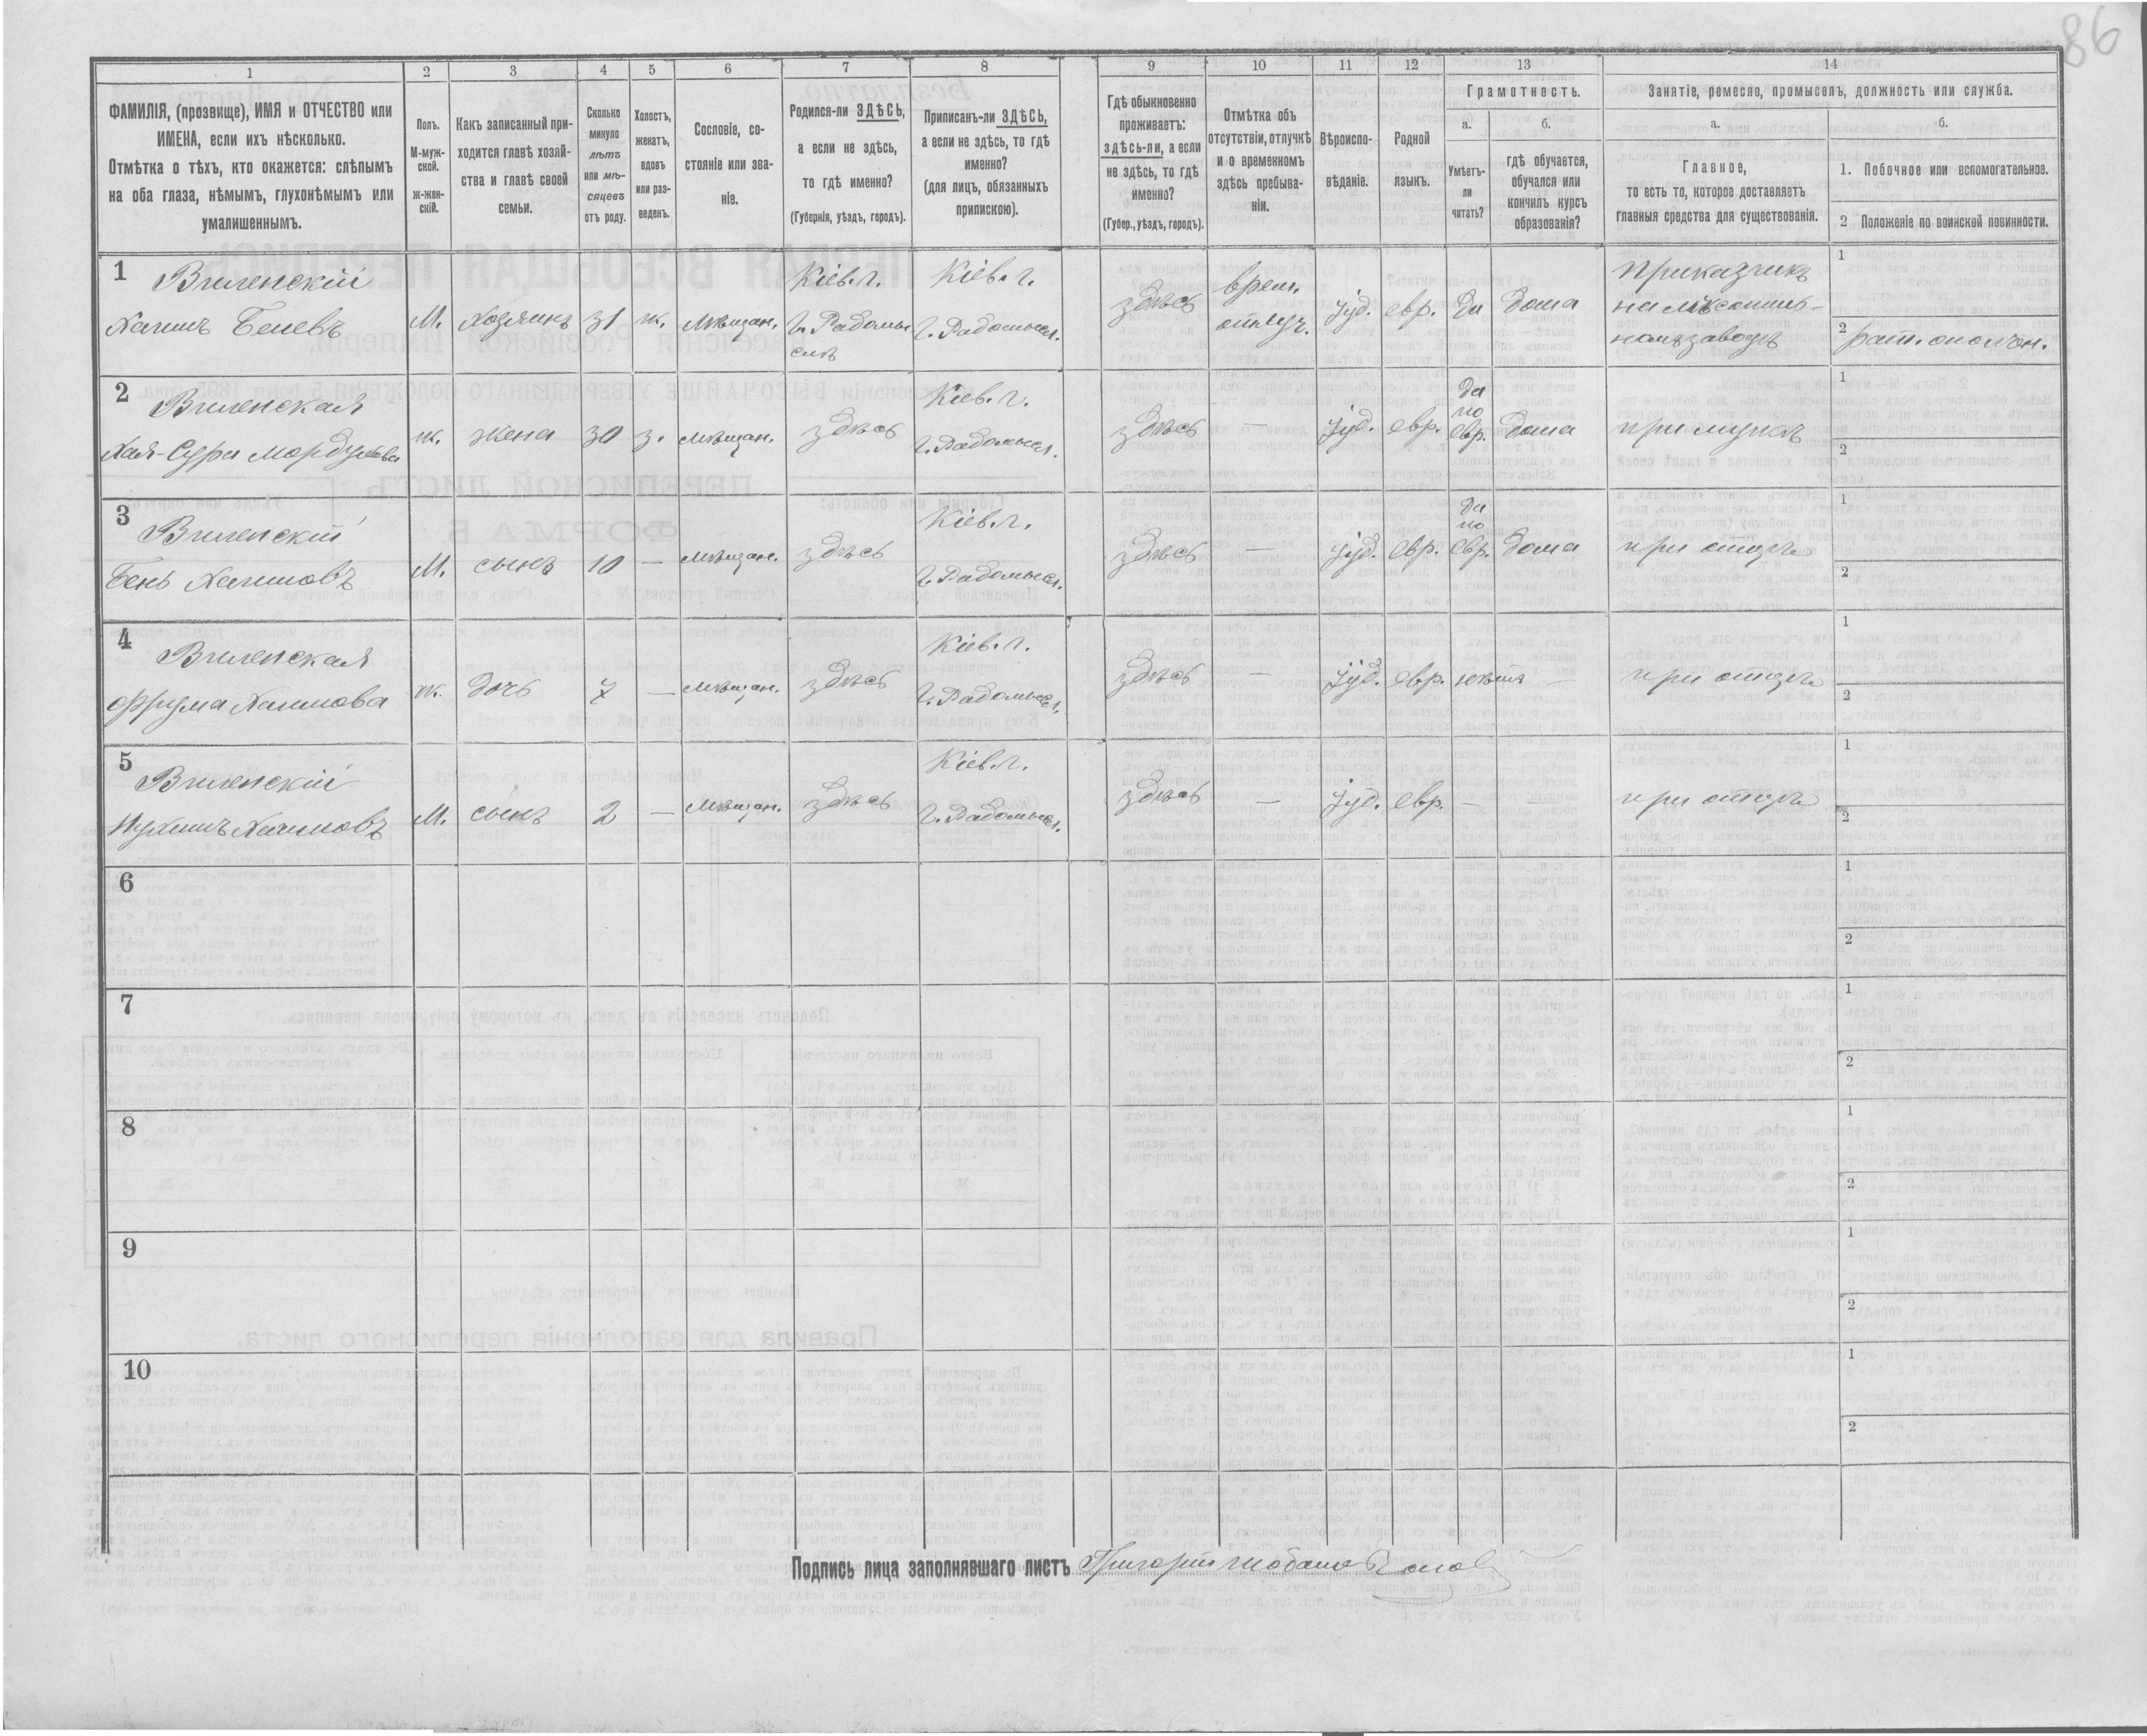 86
1
2
3
4
5
6
7
8
9
10
11
12
13
14
ФАМИЛІЯ, (прозвище), ИМЯ и ОТЧЕСТВО или
ИМЕНА, если ихъ нѣсколько.
Отмѣтка о тѣхъ, кто окажется: слѣпымъ
на оба глаза, нѣмымъ, глухонѣмымъ или
умалишеннымъ.
Полъ.
М-муж-
ской.
ж-жен-
скій.
Какъ записанный при-
ходится главѣ хозяй-
ства и главѣ своей
семьи.
Сколько
минуло
лѣтъ
или мѣ-
сяцевъ
отъ роду.
Холостъ,
женатъ,
вдовъ
или раз-
веденъ.
Сословіе, со-
стояніе или зва-
ніе.
Родился-ли ЗДѢСЬ,
а если не здѣсь,
то гдѣ именно?
(Губернія, уѣздъ, городъ).
Приписанъ-ли ЗДѢСЬ,
а если не здѣсь, то гдѣ
именно?
(для лицъ, обязанныхъ
припискою).
Гдѣ обыкновенно
проживаетъ:
здѣсь-ли, а если
не здѣсь, то гдѣ
именно?
(Губер., уѣздъ, городъ).
Отмѣтка объ
отсутствіи, отлучкѣ
и о временномъ
здѣсь пребыва-
ніи.
Вѣроиспо-
вѣданіе.
Родной
языкъ.
Грамотность.
а.
Умѣетъ-
ли
читать?
б.
гдѣ обучается,
обучался или
кончилъ курсъ
образованія?
Занятіе, ремесло, промыселъ, должность или служба.
а.
Главное,
то есть то, которое доставляетъ
главныя средства для существованія.
б.
1. Побочное или вспомогательное.
2 Положеніе по воинской повинности.
1
Виленскій
Хаимъ Беневъ
М.
хозяинъ
31
ж.
Мѣщан.
Кіев. г.
г. Радомы-
слѣ
Кіев. г.
г. Радомысл.
здѣсь
врем.
отлуч.
іуд.
евр.
да
дома
приказчикъ
на лѣсопил-
номъ заводѣ
1
2
рат. ополчен.
2
Виленская
Хая-Сура Мордухова
ж.
жена
30
з.
Мѣщан.
здѣсь
Кіев. г.
г. Радомысл.
здѣсь
—
іуд.
евр.
да
по
евр.
дома
при мужѣ
1
2
3
Виленскій
Бень Хаимовъ
М.
сынъ
10
—
Мѣщан.
здѣсь
Кіев. г.
г. Радомысл.
здѣсь
—
іуд.
евр.
да
по
евр.
дома
при отцѣ
1
2
4
Виленская
Фрума Хаимова
ж.
дочь
7
—
Мѣщан.
здѣсь
Кіев. г.
г. Радомысл.
здѣсь
—
іуд.
евр.
нѣтъ
—
при отцѣ
1
2
5
Виленскій
Нухимъ Хаимовъ
М.
сынъ
2
—
Мѣщан.
здѣсь
Кіев. г.
г. Радомысл.
здѣсь
—
іуд.
евр.
—
при отцѣ
1
2
6
1
2
7
1
2
8
1
2
9
1
2
10
1
2
Подпись лица заполнявшаго листъ Григорій